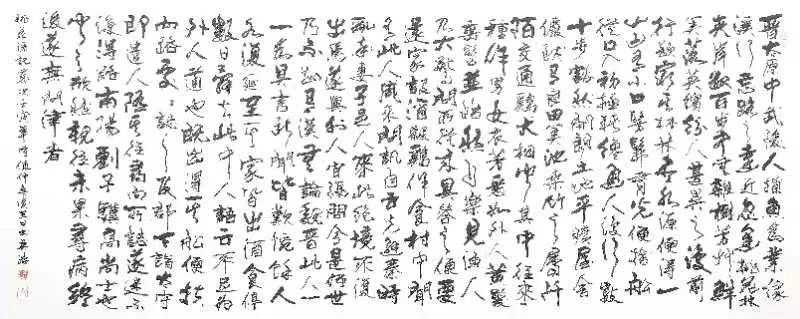 晉太原中武陵人捕魚為業緣
溪行忘路之遠近忽逢桃花林
夾岸數百步中無雜樹芳草鮮
美落英繽紛漁人甚異之復前
行欲窮其林林盡水源便得一
山山有小口髣髴若有光便捨船
從口入初極狹纔通人復行數
十步豁然開朗土地平曠屋舍
儼然有良田美池桑竹之屬阡
陌交通雞犬相聞其中往來
種作男女衣著悉如外人黃髮
垂髫並怡然自樂見漁人
乃大驚問所從來具答之便要
還家設酒殺雞作食村中聞
有此人咸來問訊自云先世避秦時
亂率妻子邑人來此絕境不復
出焉遂與外人間隔問今是何世
乃不知有漢無論魏晉此人一
一為具言所聞皆歎惋餘人
各復延至其家皆出酒食停
數日辭去此中人語云不足為
外人道也既出得其船便扶
向路處處誌之及郡下詣太守
即遣人隨其往尋向所誌遂迷不
復得路南陽劉子驥高尚士也
聞之欣然規往未果尋病終
後遂無問津者
桃花源記歲次時值仲春